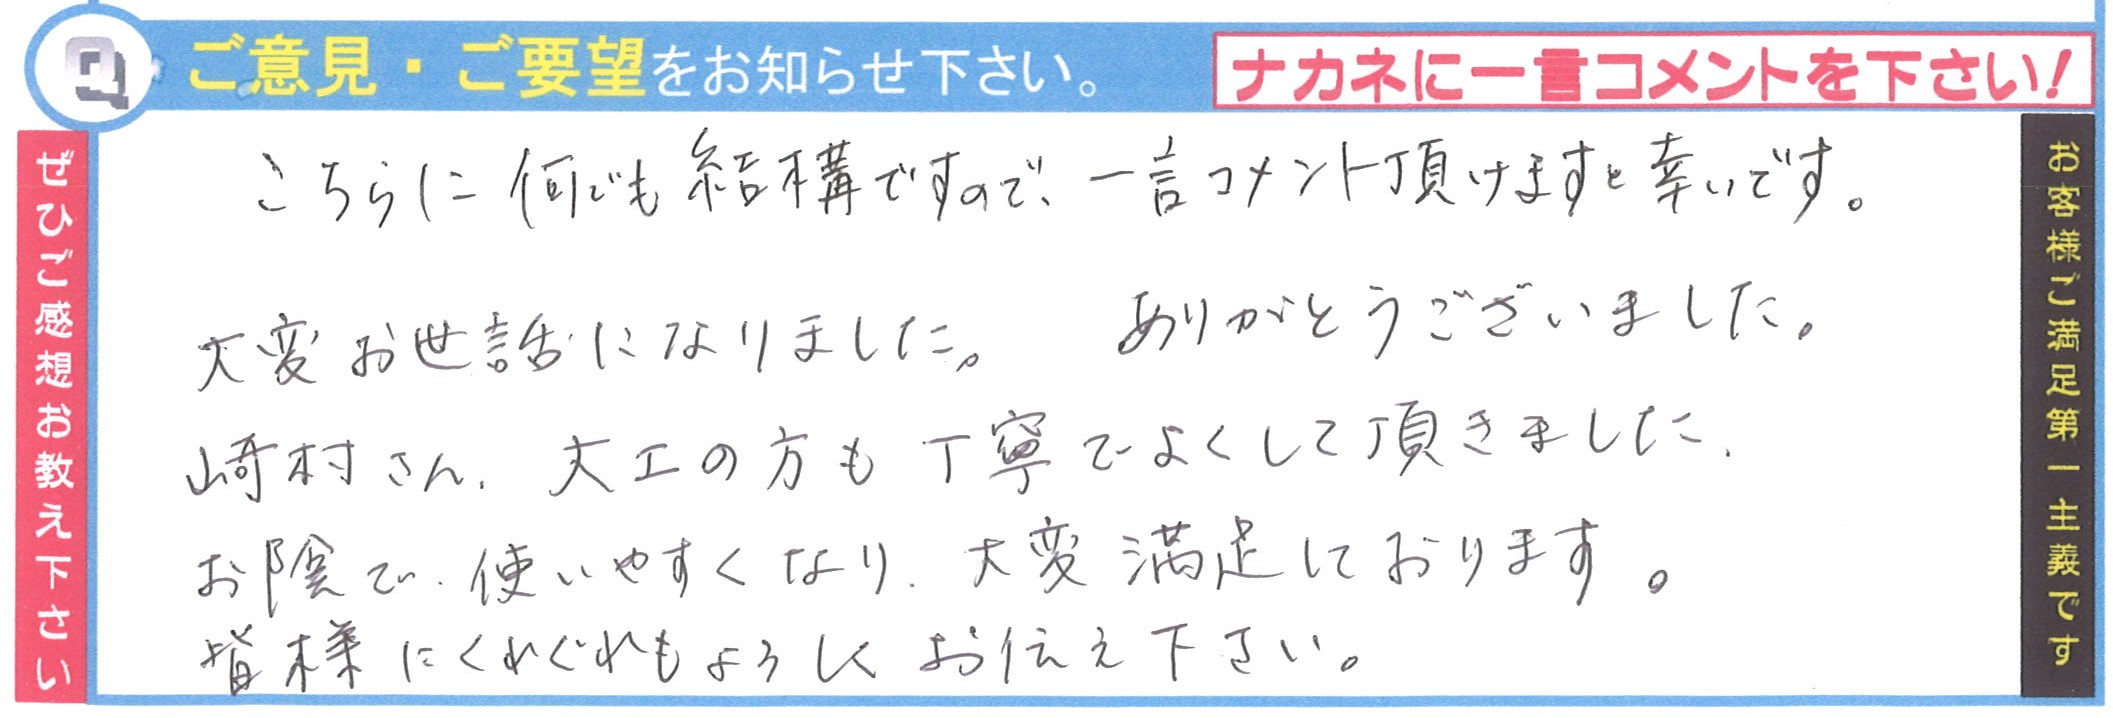 Q ご意見・ご要望をお知らせ下さい。
ナカネに一言コメントを下さい！
ぜひご感想お教え下さい
こちらに何でも結構ですので、一言コメント頂けますと幸いです。
大変お世話になりました。 ありがとうございました。
崎村さん、大工の方も丁寧でよくして頂きました、
お陰で、使いやすくなり、大変満足しております。
皆様にくれぐれもよろしくお伝え下さい。
お客様ご満足第一主義です